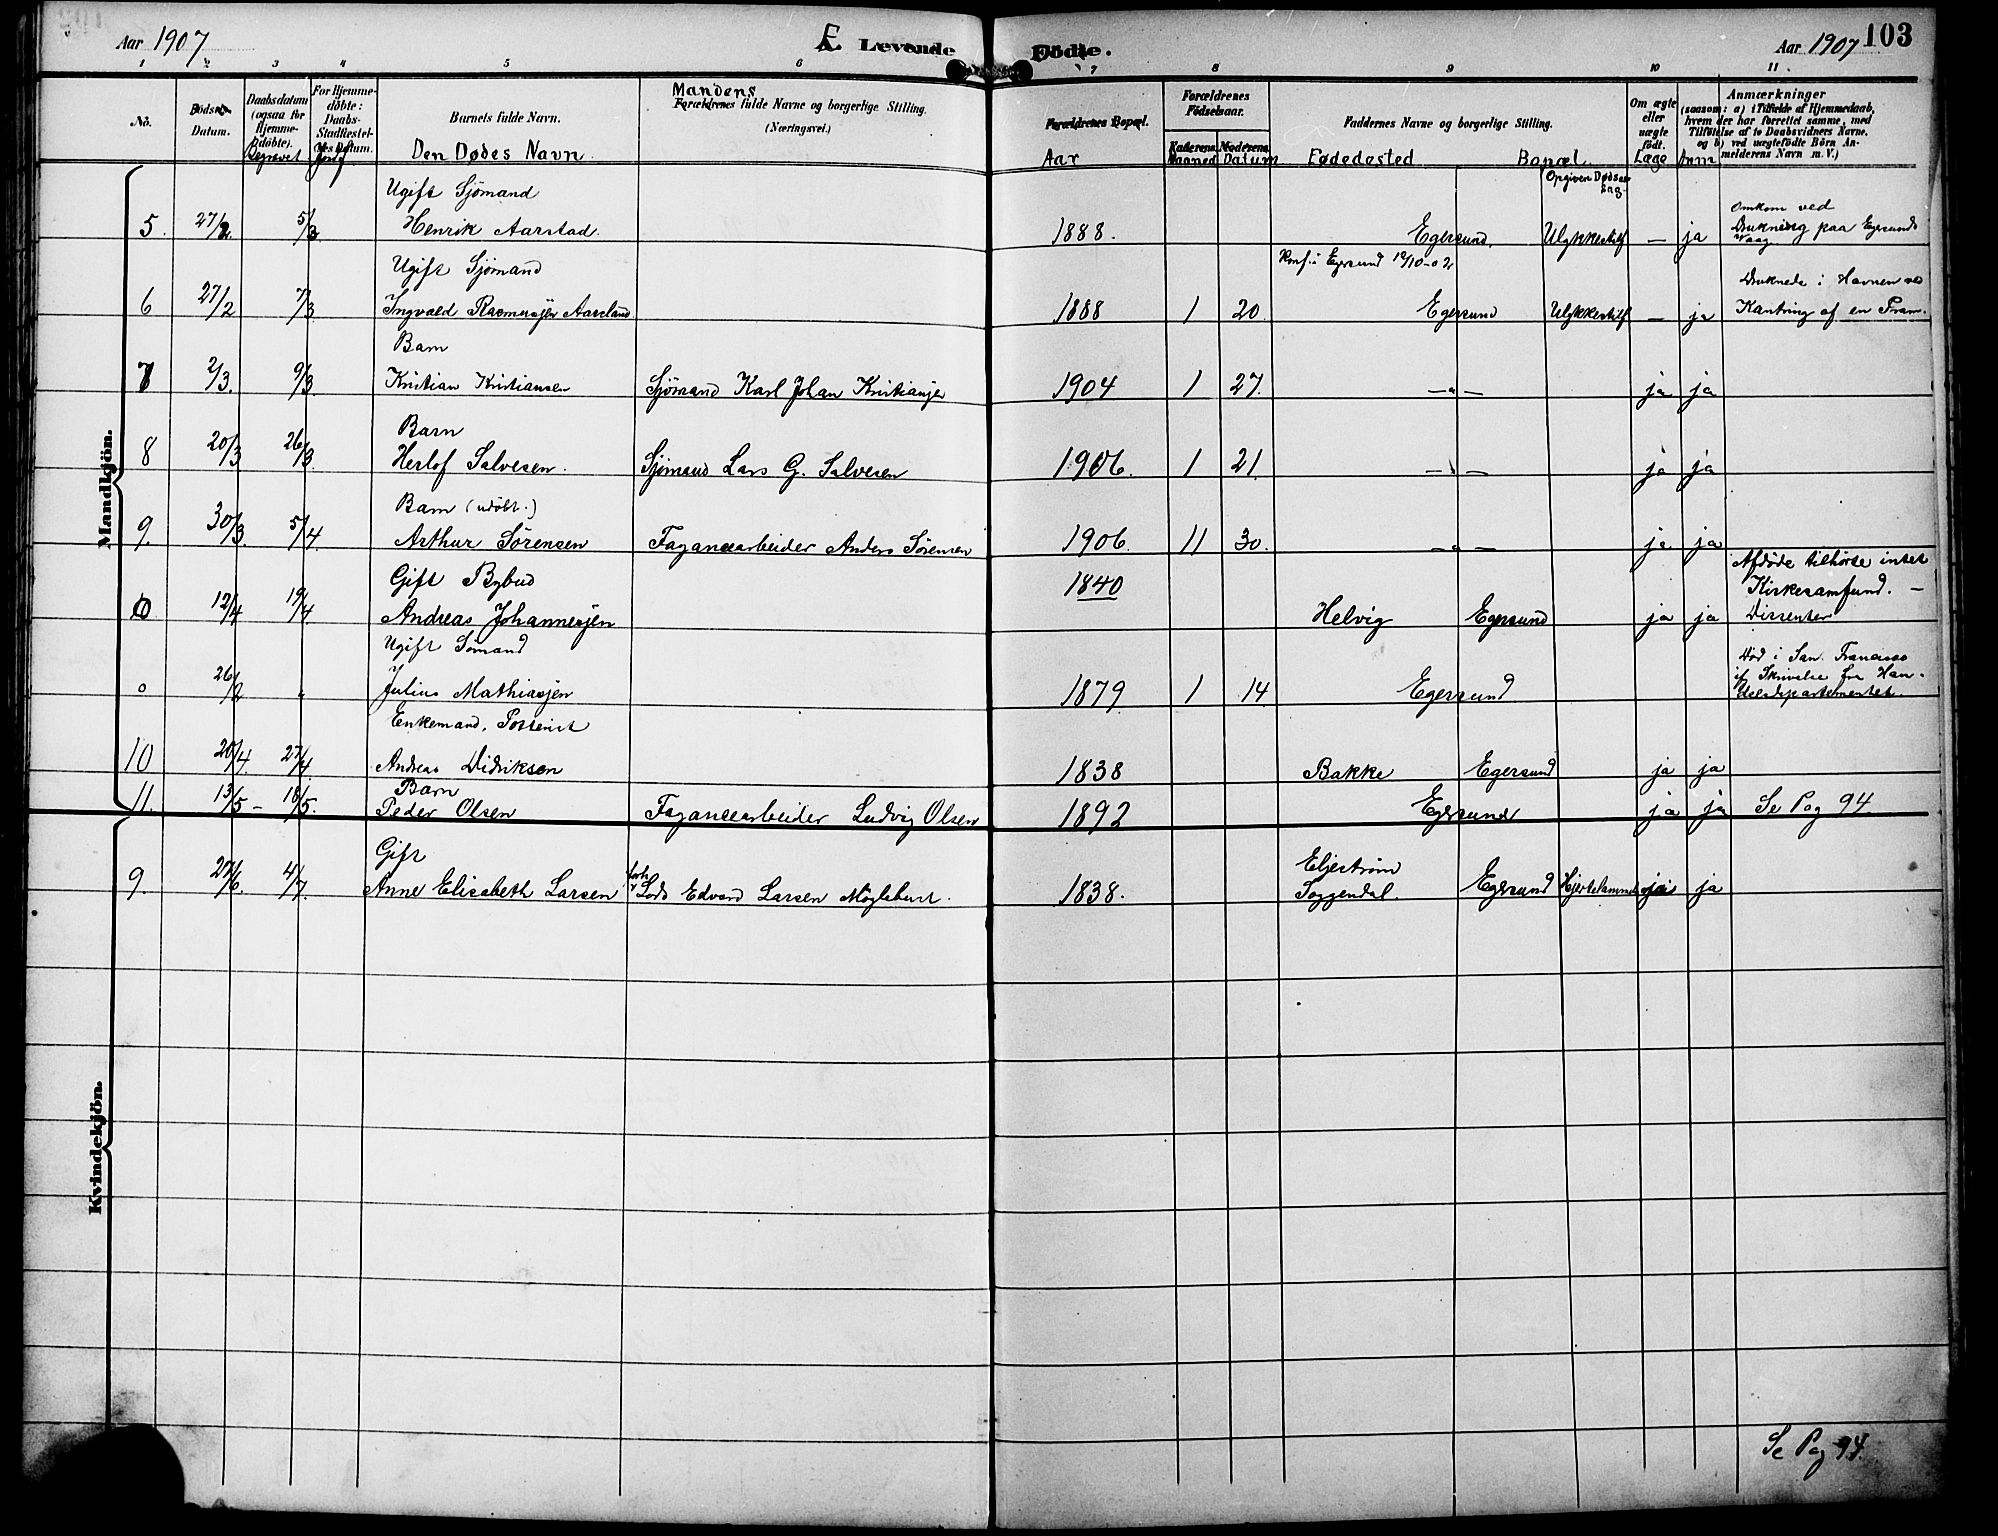 Aar 1907
E. Levende Födte.
Aar 1907 103
1 2 3 4 5 6 7 8 9 10 11
No.
Döds
Datum.
Daabsdatum (ogsaa for Hjemmedöbte).
Begravet
For Hjemmedöbte: Daabs-Stadfæstelses Datum.
Jordf
Barnets fulde Navn.
Den Dødes Navn.
Mandens
Forældrenes fulde Navne og borgerlige Stilling.
(Næringsvei.)
Forældrenes Bopæl.
Aar
Forældrenes Födselsaar.
Faderens. Moderens.
Maaned Datum
Faddernes Navne og borgerlige Stilling.
Fødedested Bopæl.
Opgiven Dødsaa
Om ægte eller uægte födt.
Læge Anm
Anmærkninger
(saasom: a) i Tilfælde af Hjemmedaab, hvem der har forrettet samme, med Tilföielse af to Daabsvidners Navne, og b) ved uægtefödte Börn Anmelderens Navn m. V.)
Mandkjön.
Ugift Sjømand
5. 27/2 5/3 Henrik Aarstad. 1888. Egersund. Ulykkestilf — ja Omkom ved Drukning paa Egersunds Vaag
Ugift Sjømand Konf. i Egersund 12/10-02
6 27/2 7/3 Ingvald Rasmussen Aarsland 1888 1 20. Egersund Ulykkestilf — ja Druknede i Havnen ved Kantring af en Pram.
Barn
7 2/3. 9/3 Kristian Kristiansen Sjømand Karl Johan Kristiansen 1904 1 27. —„— ja ja
Barn
8 20/3 26/3 Herlof Salvesen. Sjømand Lars G. Salvesen 1906. 1 21. —„— ja ja
Barn (udöbt.)
9. 30/3. 5/4. Arthur Sörensen Fayancearbeider Anders Sörensen 1906. 11 30. —„— ja ja
Gift Bybud
12/4 19/4 Andreas Johannesen 1840 Helvig Egersund ja ja Afdøde tilhørte intet Kirkesamfund. — Dissenter
Ugift Sømand
o 26/2 „ Julius Mathiasen 1879 1 14. Egersund Död i San. Francisco if. Skrivelse fra Handelsdepartementet.
Enkemand,
10 20/4. 27/4. Andreas Didriksen 1838 Bakke Egersund ja ja
Barn
11. 13/5 – 18/5. Peder Olsen Fayancearbeider Ludvig Olsen 1892 Egersund ja ja Se Pag 94.
Kvindekjön.
Gift
9. 27/6. 4/7. Anne Elisabeth Larsen Lods Edvard Larsen Møglebust. 1838. Eljestrøm Soggendal. Egersund Hjertelammelse ja ja
Se Pag 94.